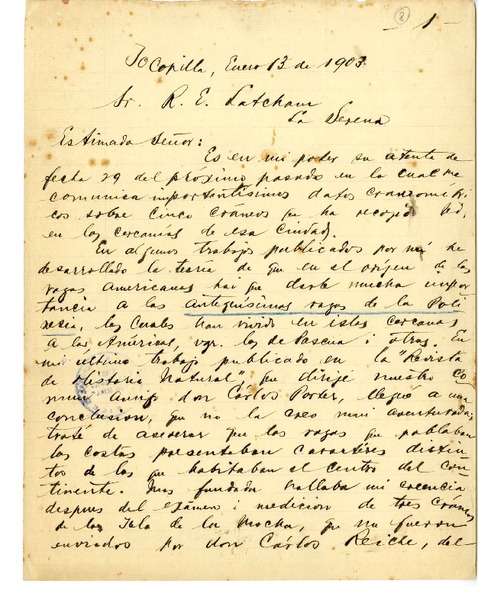 8
- 1 -
Tocopilla, Enero 13 de 1903
Sr. R. E. Latcham
La Serena
Estimado Señor:
Es en mi poder su atenta de
fecha 29 del próximo pasado en la cual me
comunica importantísimos datos craneométri
cos sobre cinco cráneos que ha recogido Ud.
en las cercanías de esa Ciudad.
En algunos trabajos publicados por mí he
desarrollado la teoría de que en el orígen de las
razas Americanas hai que darle mucha impor
tancia a las antiquísimas razas de la Poli
nesia, las cuales han vivido en islas cercanas
a las Américas, vgr. las de Pascua i otras. En
mi último trabajo publicado en la "Revista
de Historia Natural", que dirige nuestro Co
mun Amigo don Carlos Porter, llegué a una
conclusion, que no la creo mui aventurada;
traté de aseverar que las razas que poblaban
las costas presentaban caractéres distin
tos de las que habitaban el centro del Con
tinente. Mas fundada hallaba mi creencia
despues del exámen i medicion de tres cráneos
de la Isla de la Mocha, que me fueron
enviados por don Cárlos Reiche, del